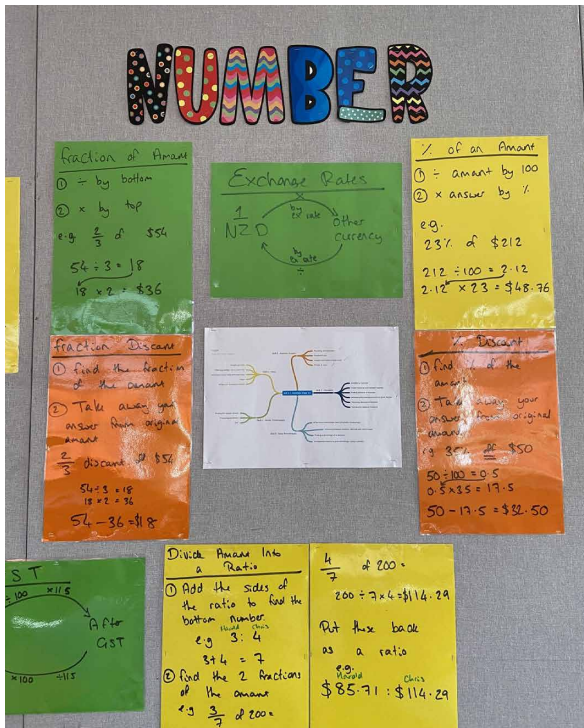 NUMBER
fraction of Amount
① ÷ by bottom
② × by top
e.g. 2/3 of $54
54 ÷ 3 = 18
18 × 2 = $36
Exchange Rates
×
by ex rate
1 NZD
Other currency
by ex rate
÷
% of an Amount
① ÷ amount by 100
② × answer by %
e.g.
23% of $212
212 ÷ 100 = 2.12
2.12 × 23 = $48.76
fraction Discount
① find the fraction
of the amount
② Take away your
answer from original
amount
2/3 discount of $54
54 ÷ 3 = 18
18 × 2 = 36
54 - 36 = $18
% Discount
① find % of the
amount
② Take away your
answer from original
amount
eg 35% off $50
50 ÷ 100 = 0.5
0.5 × 35 = 17.5
50 - 17.5 = $32.50
ST
÷100 ×115
After
GST
×100 ÷115
Divide Amount Into
a Ratio
① Add the sides of
the ratio to find the
bottom number.
Harold Chris
e.g 3 : 4
3+4 = 7
② find the 2 fractions
of the amount
e.g 3/7 of 200 =
4/7 of 200 =
200 ÷ 7 × 4 = $114.29
Put these back
as a ratio
e.g.
Harold Chris
$85.71 : $114.29